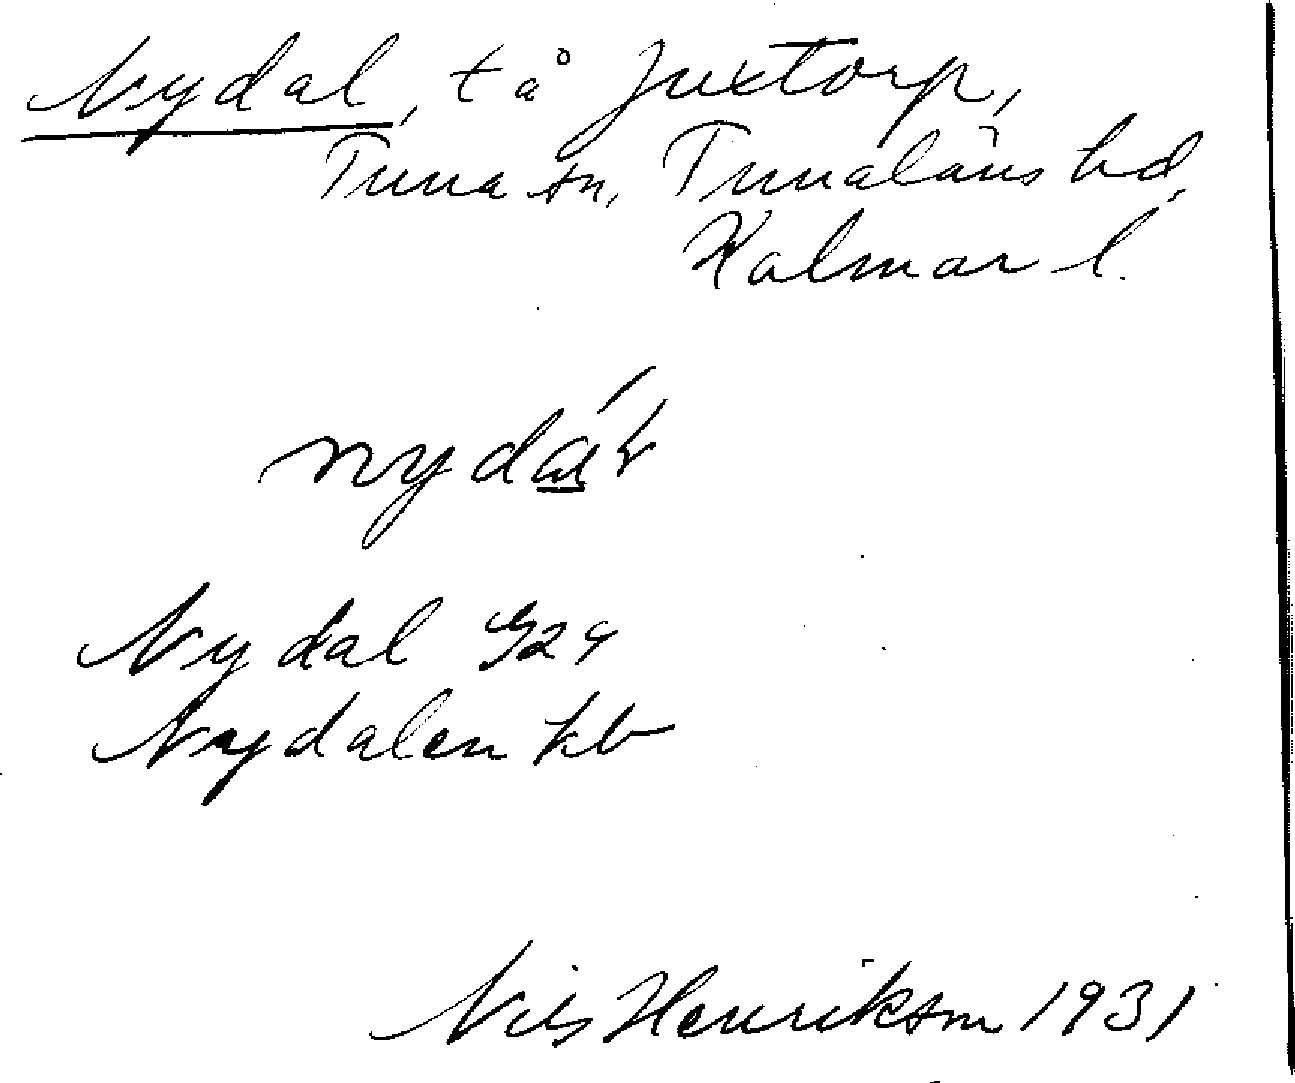 Nydal, tå Juxtorp,
Tuna sn, Tunaläns hd,
Kalmar l.
nydá
Nydal G24
Nydalen kb
Nils Henrikson 1931